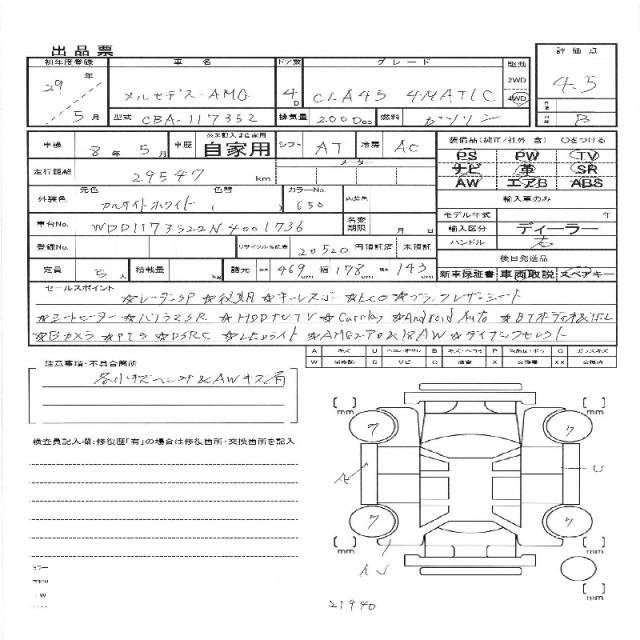 出品票
初年度登録 車名 ドア数 グレード 駆動 評価点
29年 メルセデス・AMG 4D CLA45 4MATIC 2WD 4WD 4.5
5月 型式 CBA-117352 排気量 2000cc 燃料 ガソリン B
車検 8年5月 車歴 自家用 シフト AT 冷房 AC 装備品(純正/社外 含) ○をつける
走行距離 29547 km メーター PS PW TV
ナビ 革 SR
AW エアB ABS
外装色 元色 色替 カラーNo. 650 内装色 輸入車のみ
カルサイトホワイト ( )
モデル年式 年
車台No. WDD1173522N4001736 名変期限 月 日 輸入区分 ディーラー
登録No. リサイクル預託金 20520 円 預託済 未預託 ハンドル 右
定員 5人 積載量 kg 諸元 469 cm 幅 178 cm 高 143 cm 後日発送品
新車保証書 車両取説 スペアキー
セールスポイント
★レーダーSP ★後期 ★キーレスゴー ★ECO ★ブラックレザーシート
★シートヒーター ★パノラマSR ★HDDナビTV ★CarPlay ★Android Auto ★BTオーディオ&TEL
★Bカメラ ★PTS ★DSRC ★LEDライト ★AMGエアロ&18AW ★ダイナミックセレクト
A キズ U ヘコ B P G ガラスキズ
W S サビ C 腐食 X XX
注意事項・不具合箇所
各小キズヘコミ&AWキズ有
検査員記入欄:修復歴「有」の場合は修復箇所・交換箇所を記入
mm mm
7 7
A U
7 7
mm mm
AU
カラー
21940